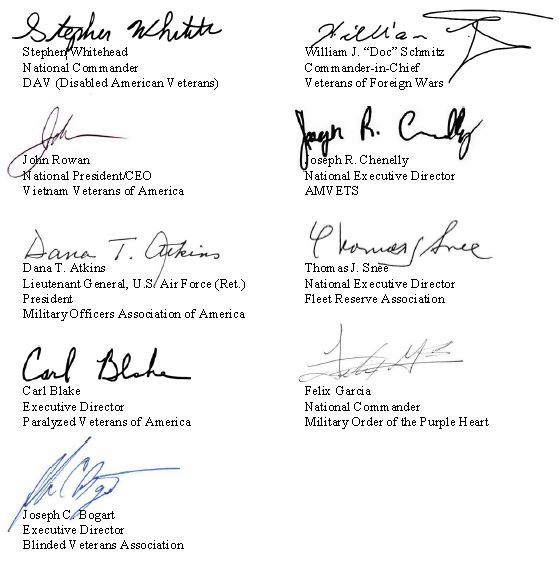 Stephen Whitehead
Stephen Whitehead
National Commander
DAV (Disabled American Veterans)
William J.
William J. “Doc” Schmitz
Commander-in-Chief
Veterans of Foreign Wars
John
John Rowan
National President/CEO
Vietnam Veterans of America
Joseph R. Chenelly
Joseph R. Chenelly
National Executive Director
AMVETS
Dana T. Atkins
Dana T. Atkins
Lieutenant General, U.S. Air Force (Ret.)
President
Military Officers Association of America
Thomas J Snee
Thomas J. Snee
National Executive Director
Fleet Reserve Association
Carl Blake
Carl Blake
Executive Director
Paralyzed Veterans of America
Felix Garcia
National Commander
Military Order of the Purple Heart
Joseph C. Bogart
Executive Director
Blinded Veterans Association